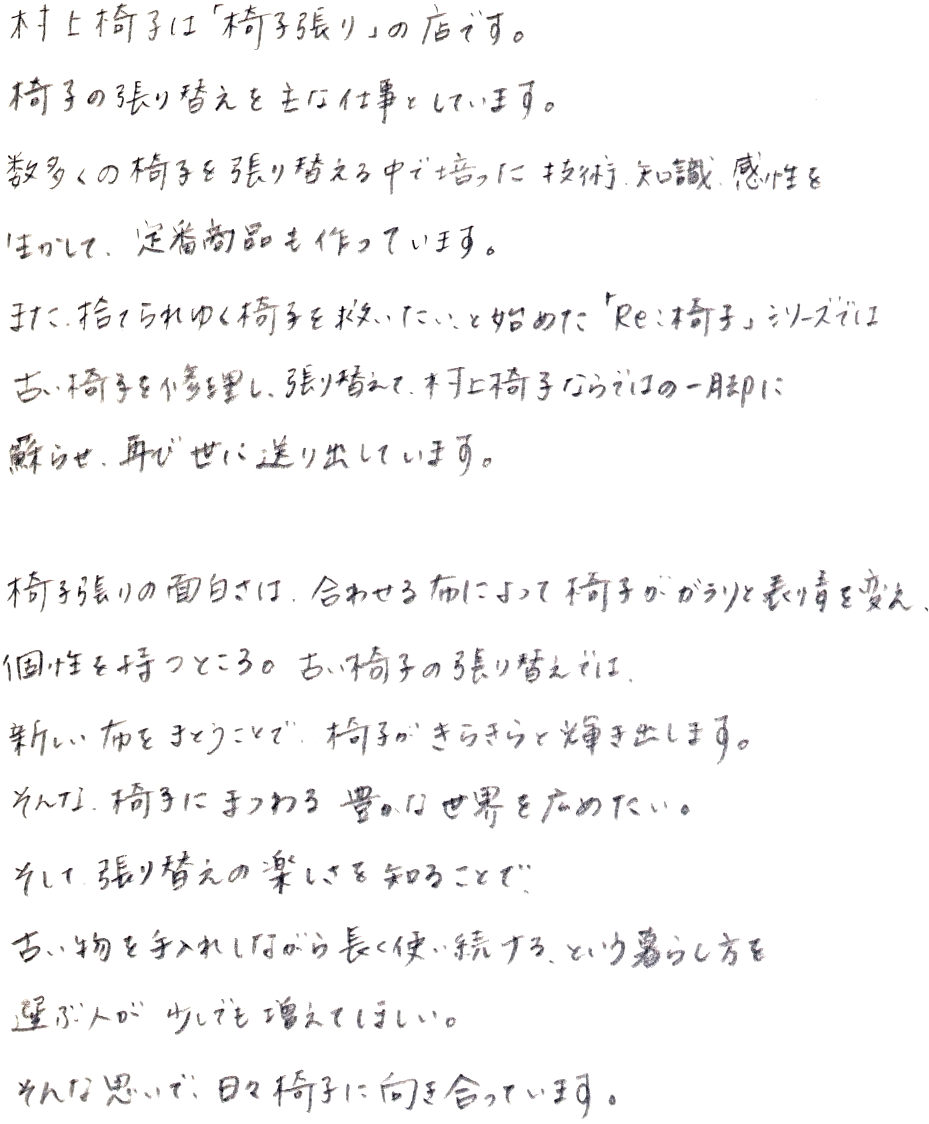 村上椅子は「椅子張り」の店です。
椅子の張り替えを主な仕事としています。
数多くの椅子を張り替える中で培った技術、知識、感性を
生かして、定番商品も作っています。
また、捨てられゆく椅子を救いたい、と始めた「Re:椅子」シリーズでは
古い椅子を修理し、張り替えて、村上椅子ならではの一脚に
蘇らせ、再び世に送り出しています。
椅子張りの面白さは、合わせる布によって椅子がガラリと表情を変え、
個性を持つところ。古い椅子の張り替えでは、
新しい布をまとうことで、椅子がきらきらと輝き出します。
そんな、椅子にまつわる豊かな世界を広めたい。
そして、張り替えの楽しさを知ることで、
古い物を手入れしながら長く使い続ける、という暮らし方を
選ぶ人が少しでも増えてほしい。
そんな思いで、日々椅子に向き合っています。